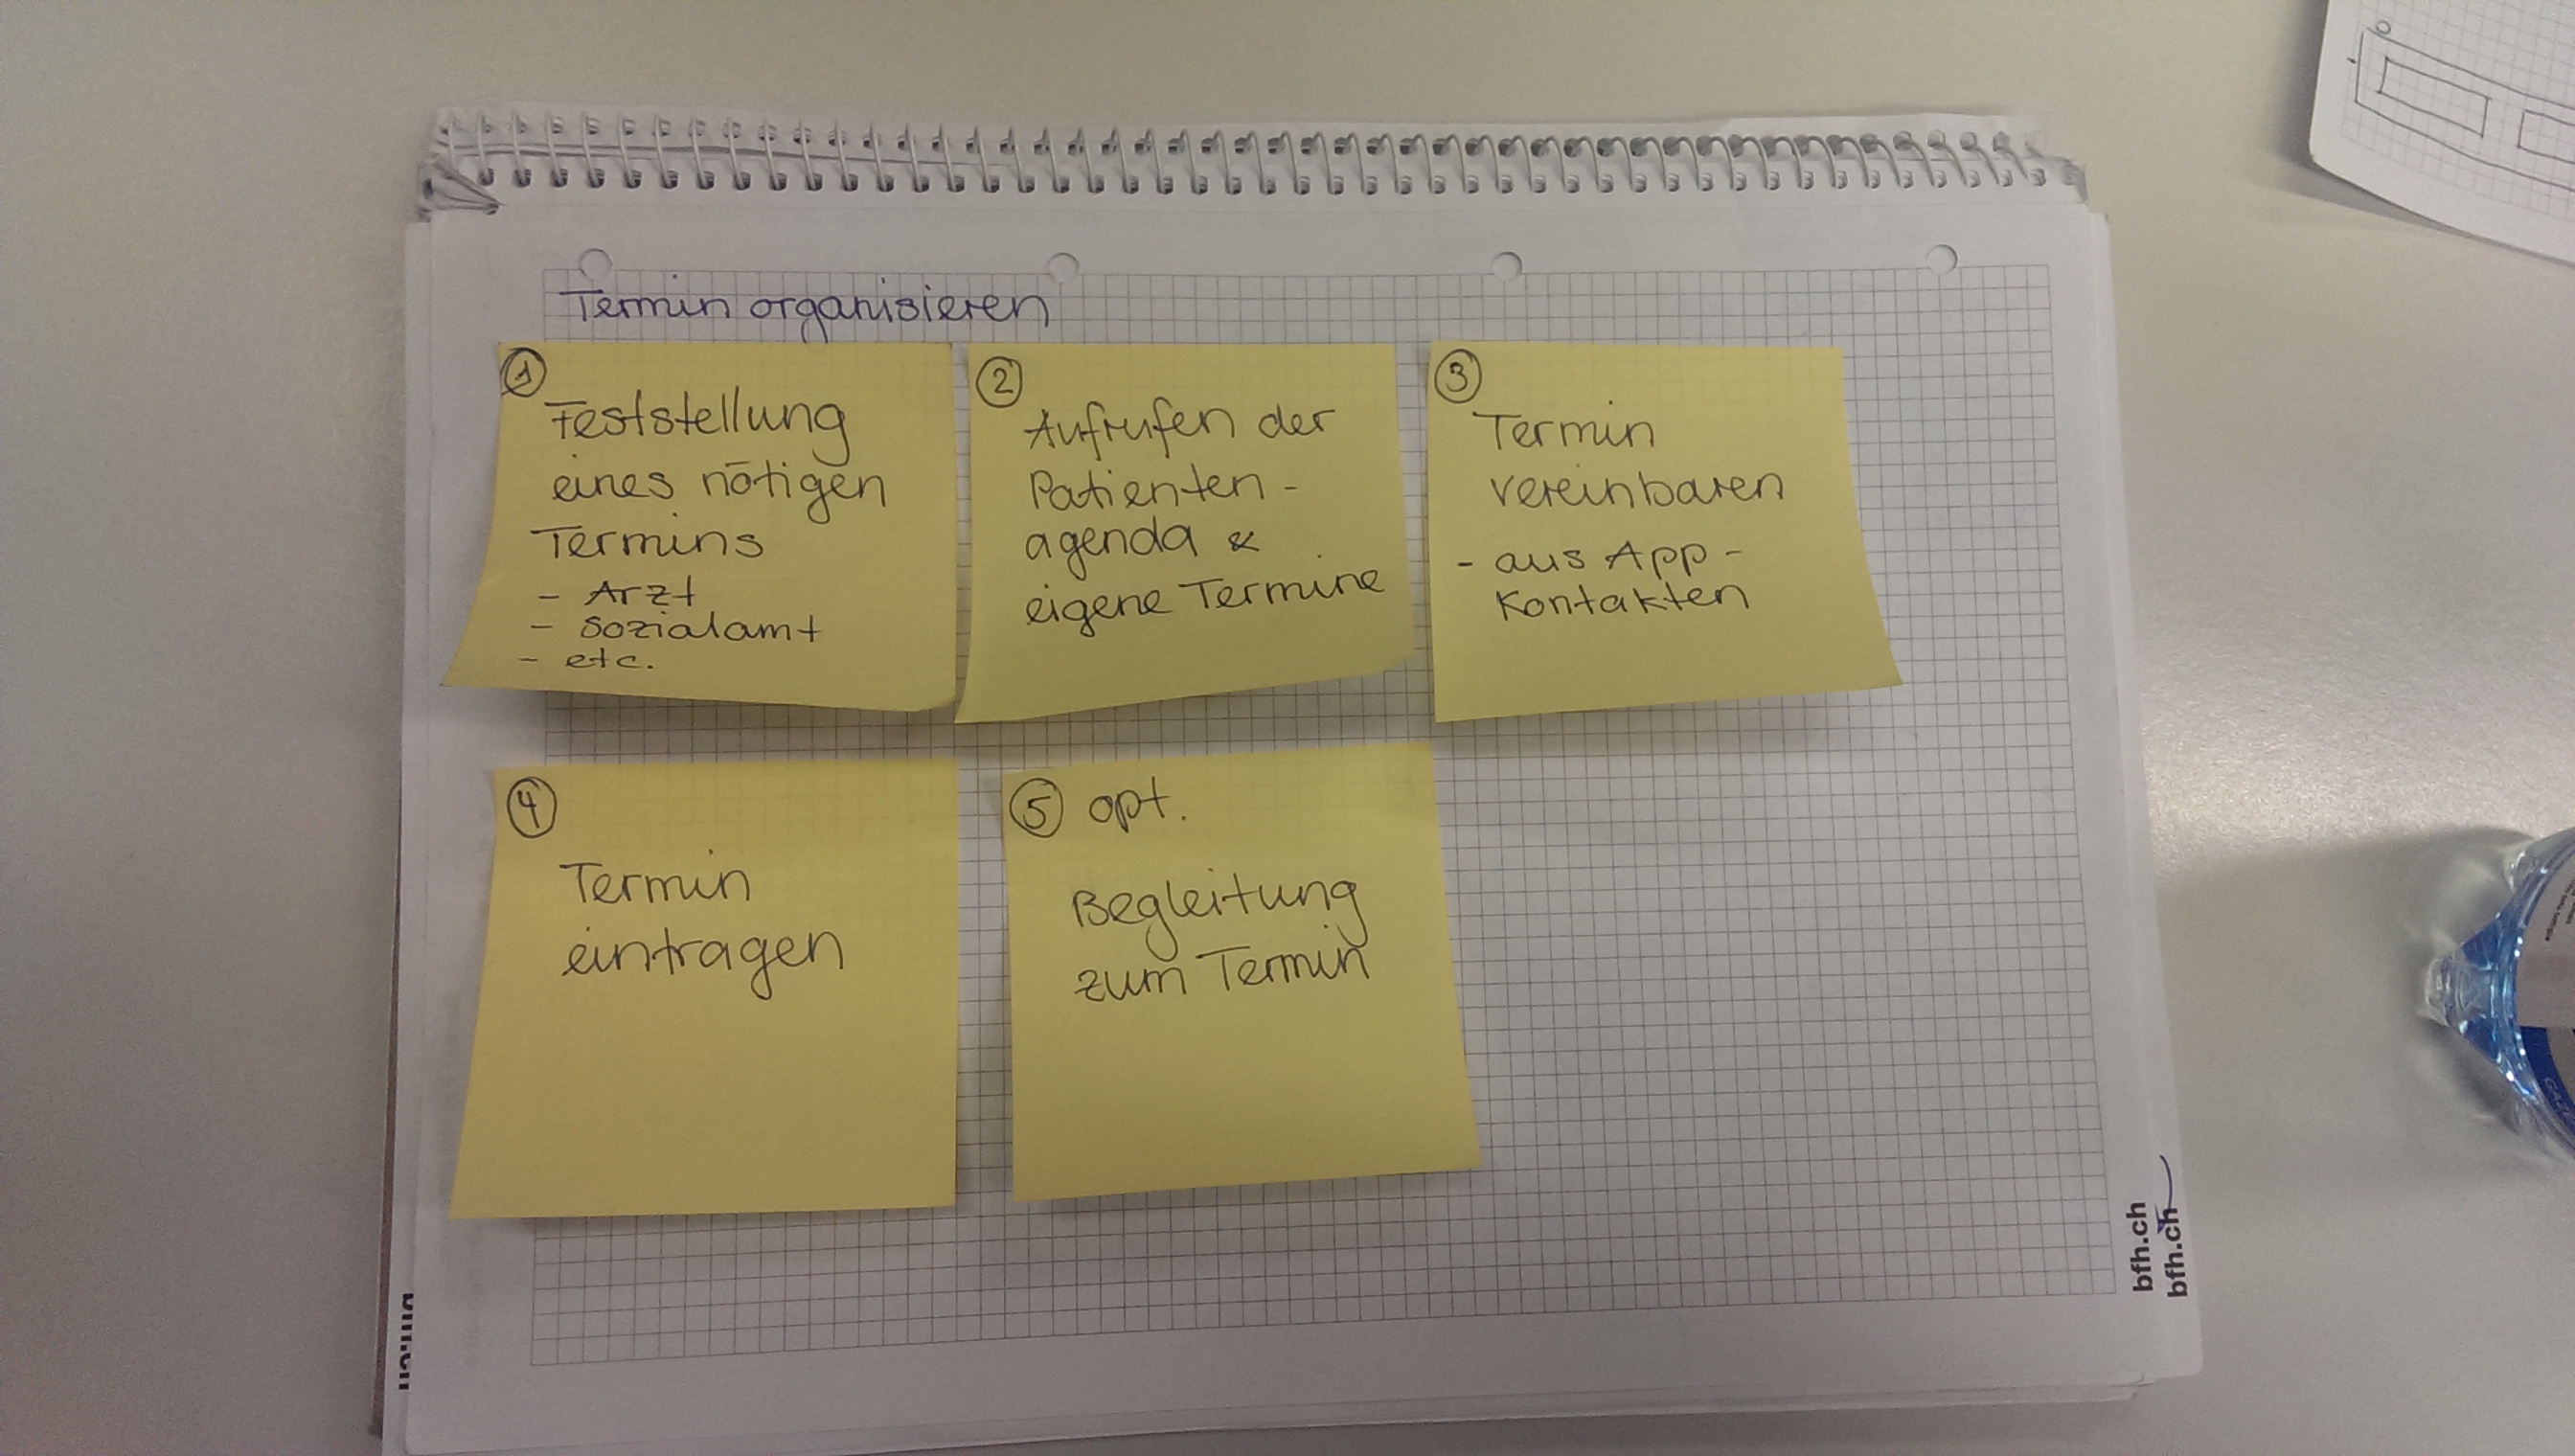 Termin organisieren
1
Feststellung
eines nötigen
Termins
- Arzt
- Sozialamt
- etc.
2
Aufrufen der
Patienten-
agenda &
eigene Termine
3
Termin
vereinbaren
- aus App-
Kontakten
4
Termin
eintragen
5 opt.
Begleitung
zum Termin
bfh.ch
bfh.ch